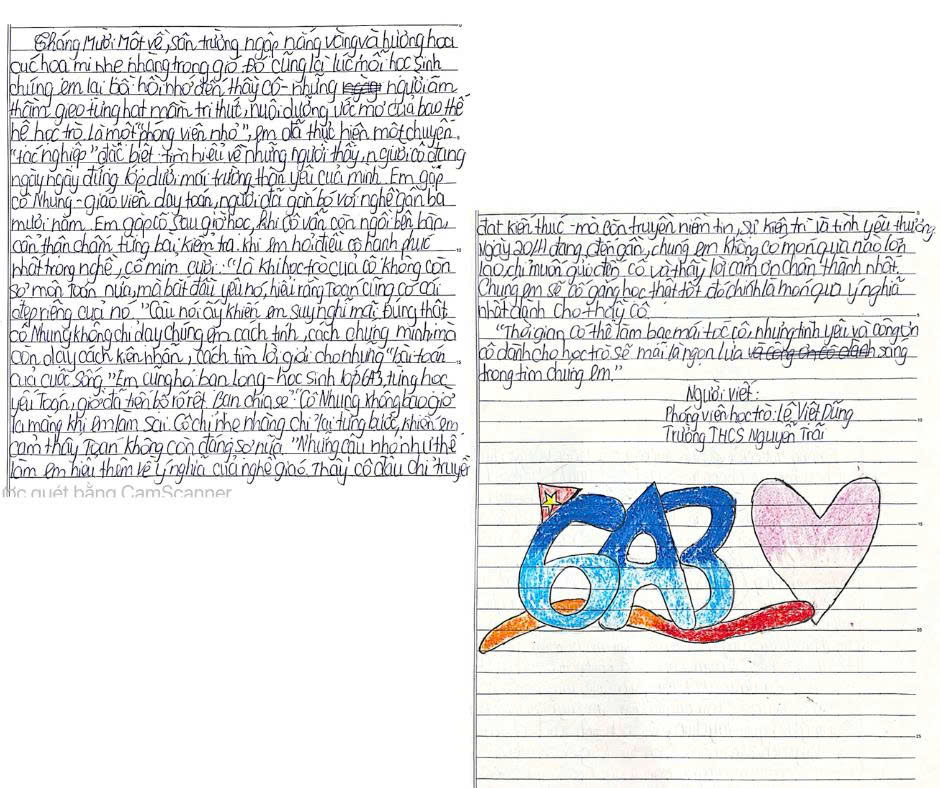 Tháng Mười Một về, sân trường ngập nắng vàng và hương hoa
cúc họa mi nhẹ nhàng trong gió. Đó cũng là lúc mỗi học sinh
chúng em lại bồi hồi nhớ đến thầy cô - những người âm
thầm gieo từng hạt mầm tri thức, nuôi dưỡng ước mơ của bao thế
hệ học trò. Là một "phóng viên nhỏ", em đã thực hiện một chuyến
"tác nghiệp" đặc biệt: tìm hiểu về những người thầy, người cô đang
ngày ngày đứng lớp dưới mái trường thân yêu của mình. Em gặp
cô Nhung - giáo viên dạy toán, người đã gắn bó với nghề gần ba
mươi năm. Em gặp cô sau giờ học, khi cô vẫn còn ngồi bên bàn,
cẩn thận chấm từng bài kiểm tra. khi em hỏi điều cô hạnh phúc
nhất trong nghề, cô mỉm cười: "Là khi học trò của cô không còn
sợ môn Toán nữa, mà bắt đầu yêu nó, hiểu rằng Toán cũng có cái
đẹp riêng của nó." Câu nói ấy khiến em suy nghĩ mãi. Đúng thật
cô Nhung không chỉ dạy chúng em cách tính, cách chứng minh, mà
còn dạy cách kiên nhẫn, cách tìm lời giải cho những "bài toán
của cuộc sống." Em cũng hỏi bạn Long - học sinh lớp 6A3, từng học
yếu Toán, giờ đã tiến bộ rõ rệt. Bạn chia sẻ "Cô Nhung không bao giờ
la mắng khi em làm sai. Cô chỉ nhẹ nhàng chỉ lại từng bước, khiến em
cảm thấy Toán không còn đáng sợ nữa. "Những câu nhỏ như thế
làm em hiểu thêm về ý nghĩa của nghề giáo. Thầy cô đâu chỉ truyền
ược quét bằng CamScanner
đạt kiến thức - mà còn truyền niềm tin, sự kiên trì và tình yêu thương.
Ngày 20/11 đang đến gần, chúng em không có món quà nào lớn
lao, chỉ muốn gửi đến cô và thầy lời cảm ơn chân thành nhất.
Chúng em sẽ cố gắng học thật tốt đó chính là món quà ý nghĩa
nhất dành cho thầy cô.
"Thời gian có thể làm bạc mái tóc cô, nhưng tình yêu và công ơn
cô dành cho học trò sẽ mãi là ngọn lửa sáng
trong tim chúng em."
Người viết:
Phóng viên học trò: Lê Việt Dũng
Trường THCS Nguyễn Trãi
6A3